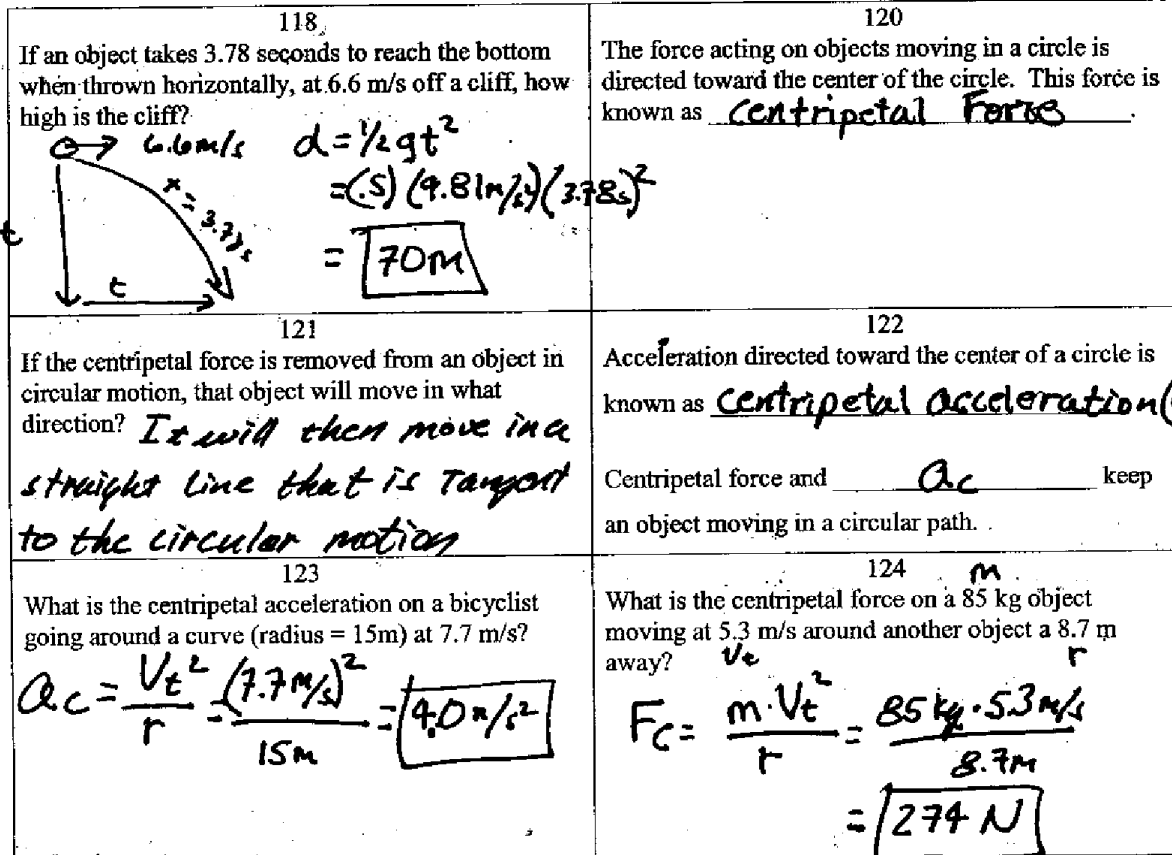 118
If an object takes 3.78 seconds to reach the bottom
when thrown horizontally, at 6.6 m/s off a cliff, how
high is the cliff?
6.6m/s
d = 1/2 gt²
= (.5) (9.81m/s²) (3.78s)²
x = 3.78s
t
= 70m
t
120
The force acting on objects moving in a circle is
directed toward the center of the circle. This force is
known as Centripetal Force.
121
If the centripetal force is removed from an object in
circular motion, that object will move in what
direction? It will then move in a
straight line that is Tangent
to the circular motion
122
Acceleration directed toward the center of a circle is
known as Centripetal acceleration (
Centripetal force and ac keep
an object moving in a circular path.
123
What is the centripetal acceleration on a bicyclist
going around a curve (radius = 15m) at 7.7 m/s?
ac = Vt²/r = (7.7 m/s)²/15m = 4.0 m/s²
124
m
What is the centripetal force on a 85 kg object
moving at 5.3 m/s around another object a 8.7 m
away? Vt r
Fc = m·Vt²/r = 85 kg·5.3 m/s/8.7m
= 274 N